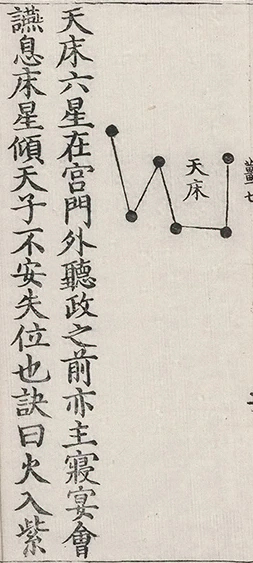 天床
天床六星在宫門外聽政之前亦主寢宴會
讌息床星傾天子不安失位也訣曰火入紫